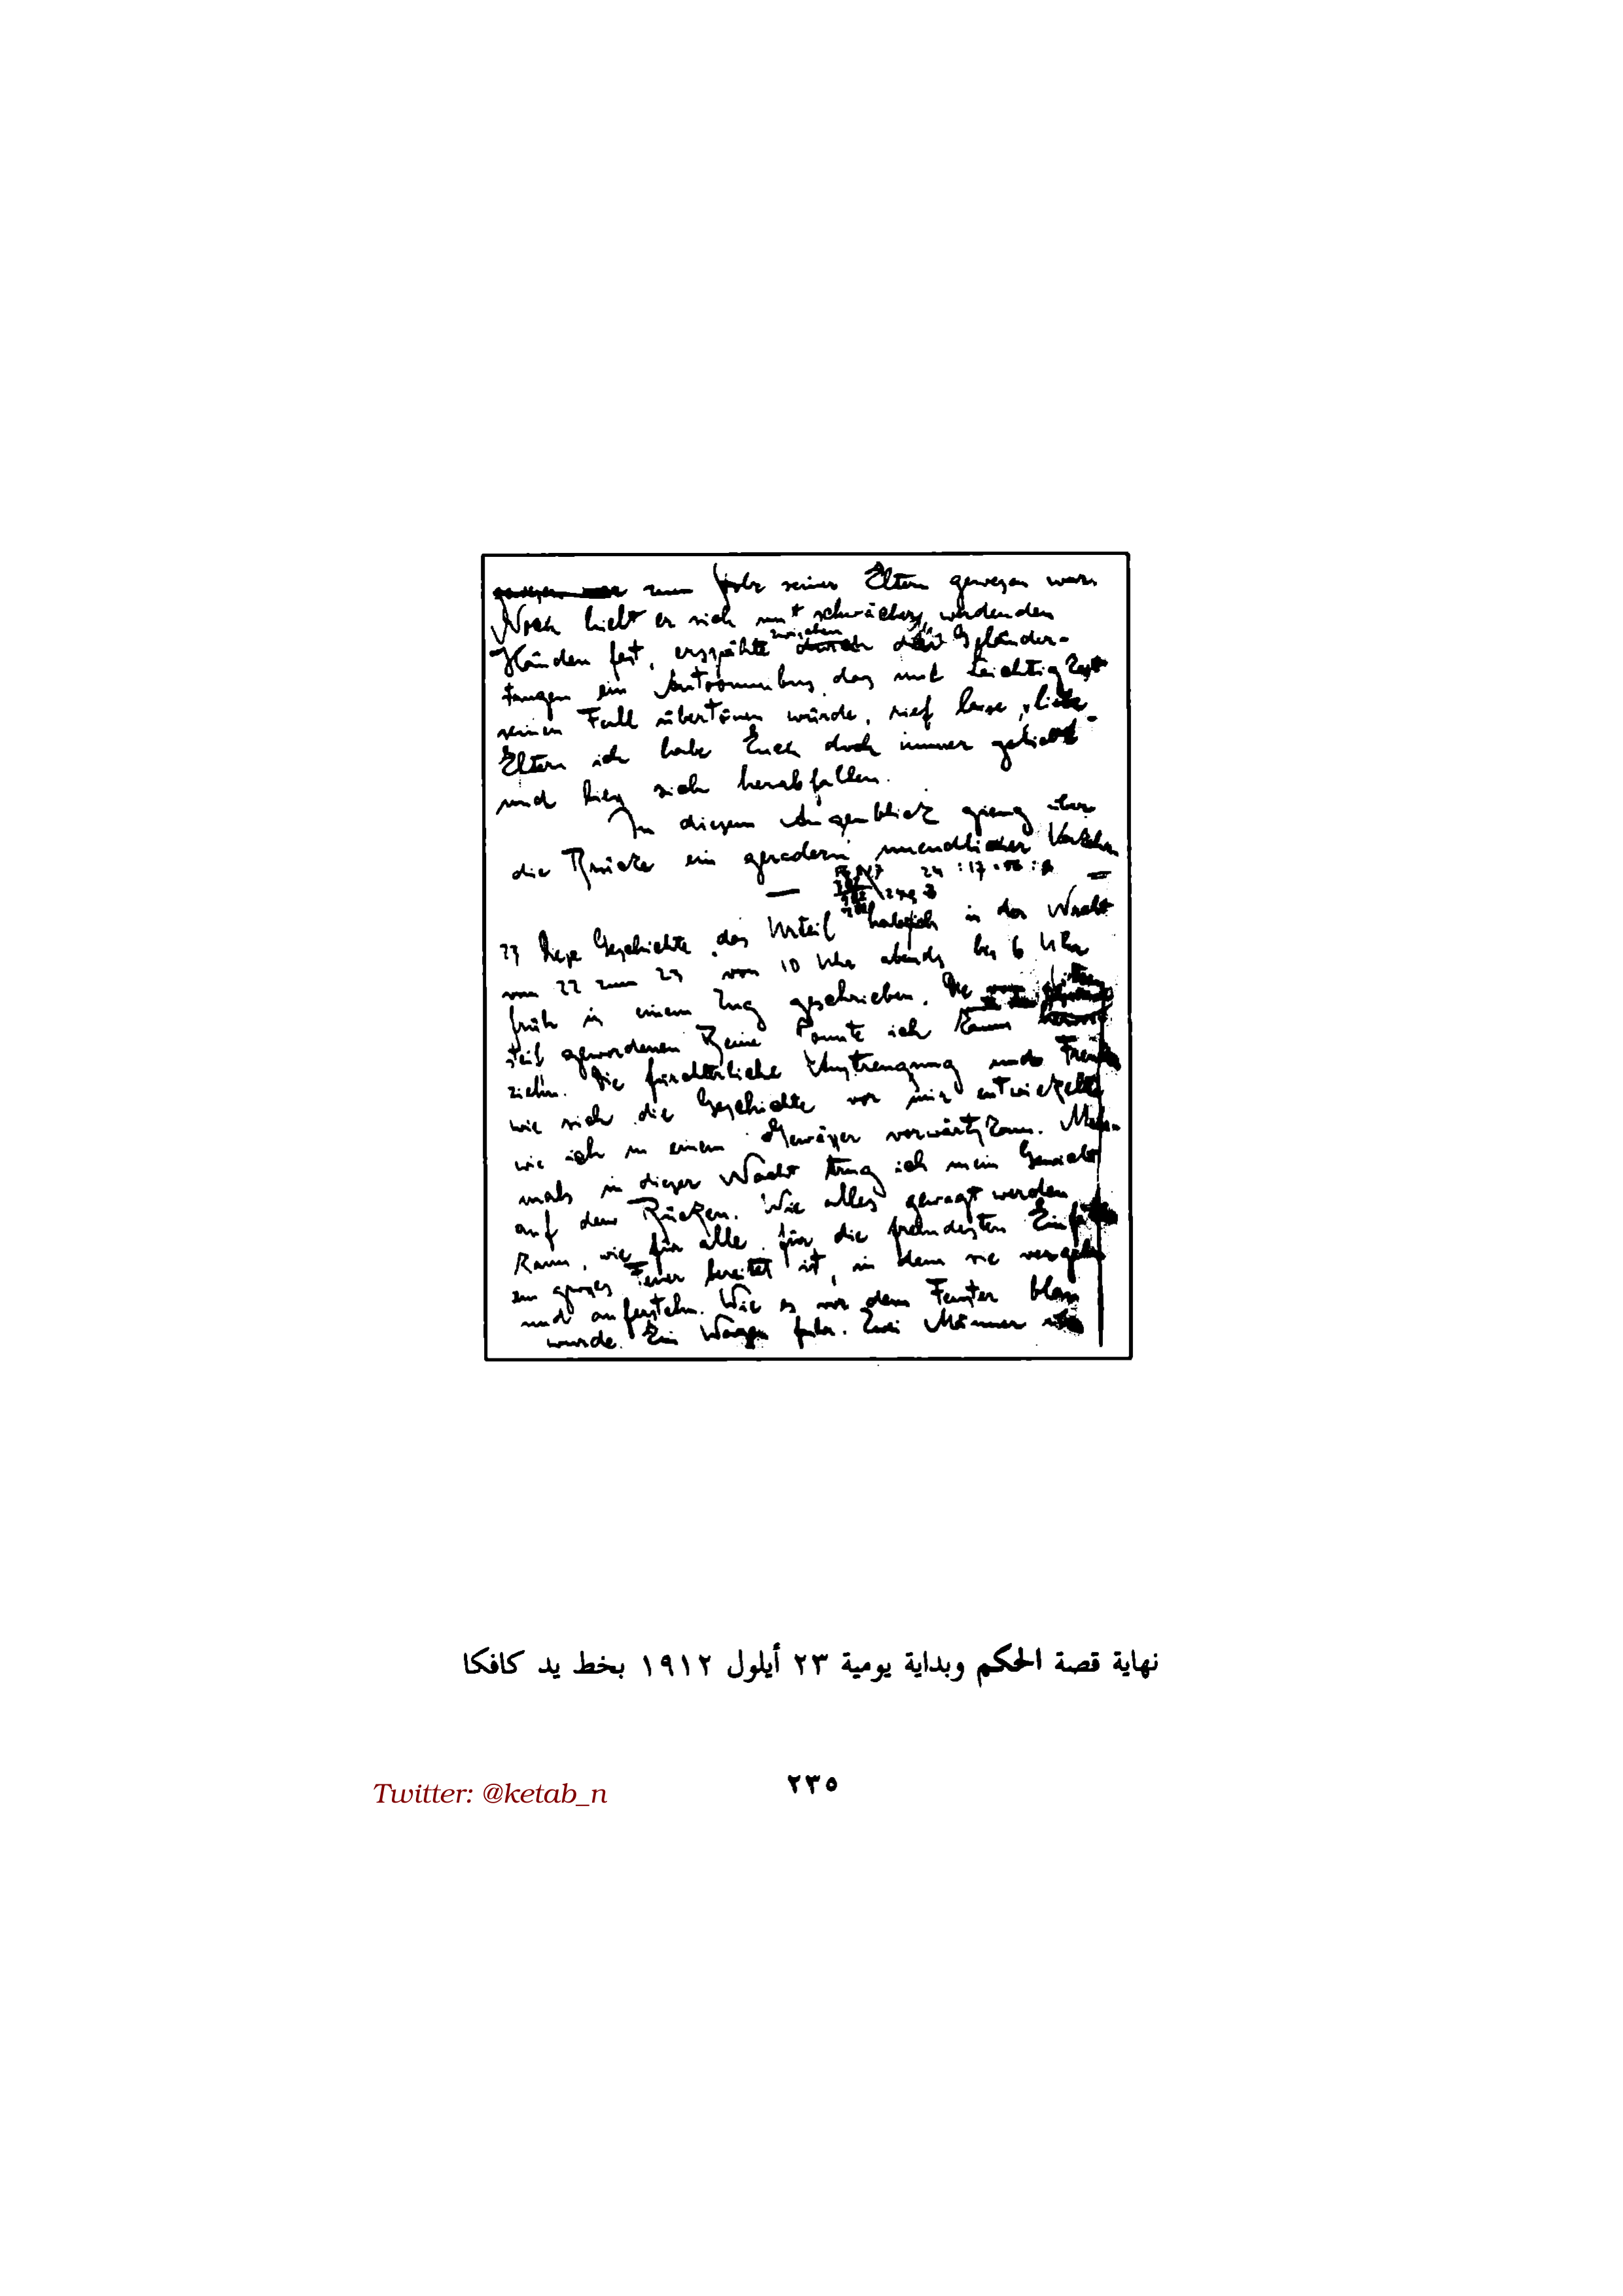 zum Stolz seiner Eltern gewesen war.
Noch hielt er sich mit schwächer werdenden
Händen fest, erspähte zwischen den Geländer-
stangen ein Autoomnibus, das mit Leichtigkeit
seinen Fall übertönen würde, rief leise „liebe
Eltern ich habe Euch doch immer geliebt“
und ließ sich herabfallen.
In diesem Augenblick gieng über
die Brücke ein geradezu unendlicher Verkehr
—
23 Diese Geschichte „das Urteil“ habe ich in der Nacht
vom 22 zum 23 von 10 Uhr abends bis 6 Uhr
früh in einem Zug geschrieben. Die vom Sitzen
steif gewordenen Beine konnte ich kaum
ziehn. Die fürchterliche Anstrengung und Freude,
wie sich die Geschichte vor mir entwickelte
wie ich in einem Gewässer vorwärtskam. Mehr-
mals in dieser Nacht trug ich mein Gewicht
auf dem Rücken. Wie alles gewagt werden
kann, wie für alle, für die fremdesten Einfälle
ein großes Feuer bereitet ist, in dem sie vergehn
und auferstehn. Wie es vor dem Fenster blau
wurde. Ein Wagen fuhr. Zwei Männer
نهاية قصة الحكم وبداية يومية ٢٣ أيلول ١٩١٢ بخط يد كافكا
٢٣٥
Twitter: @ketab_n